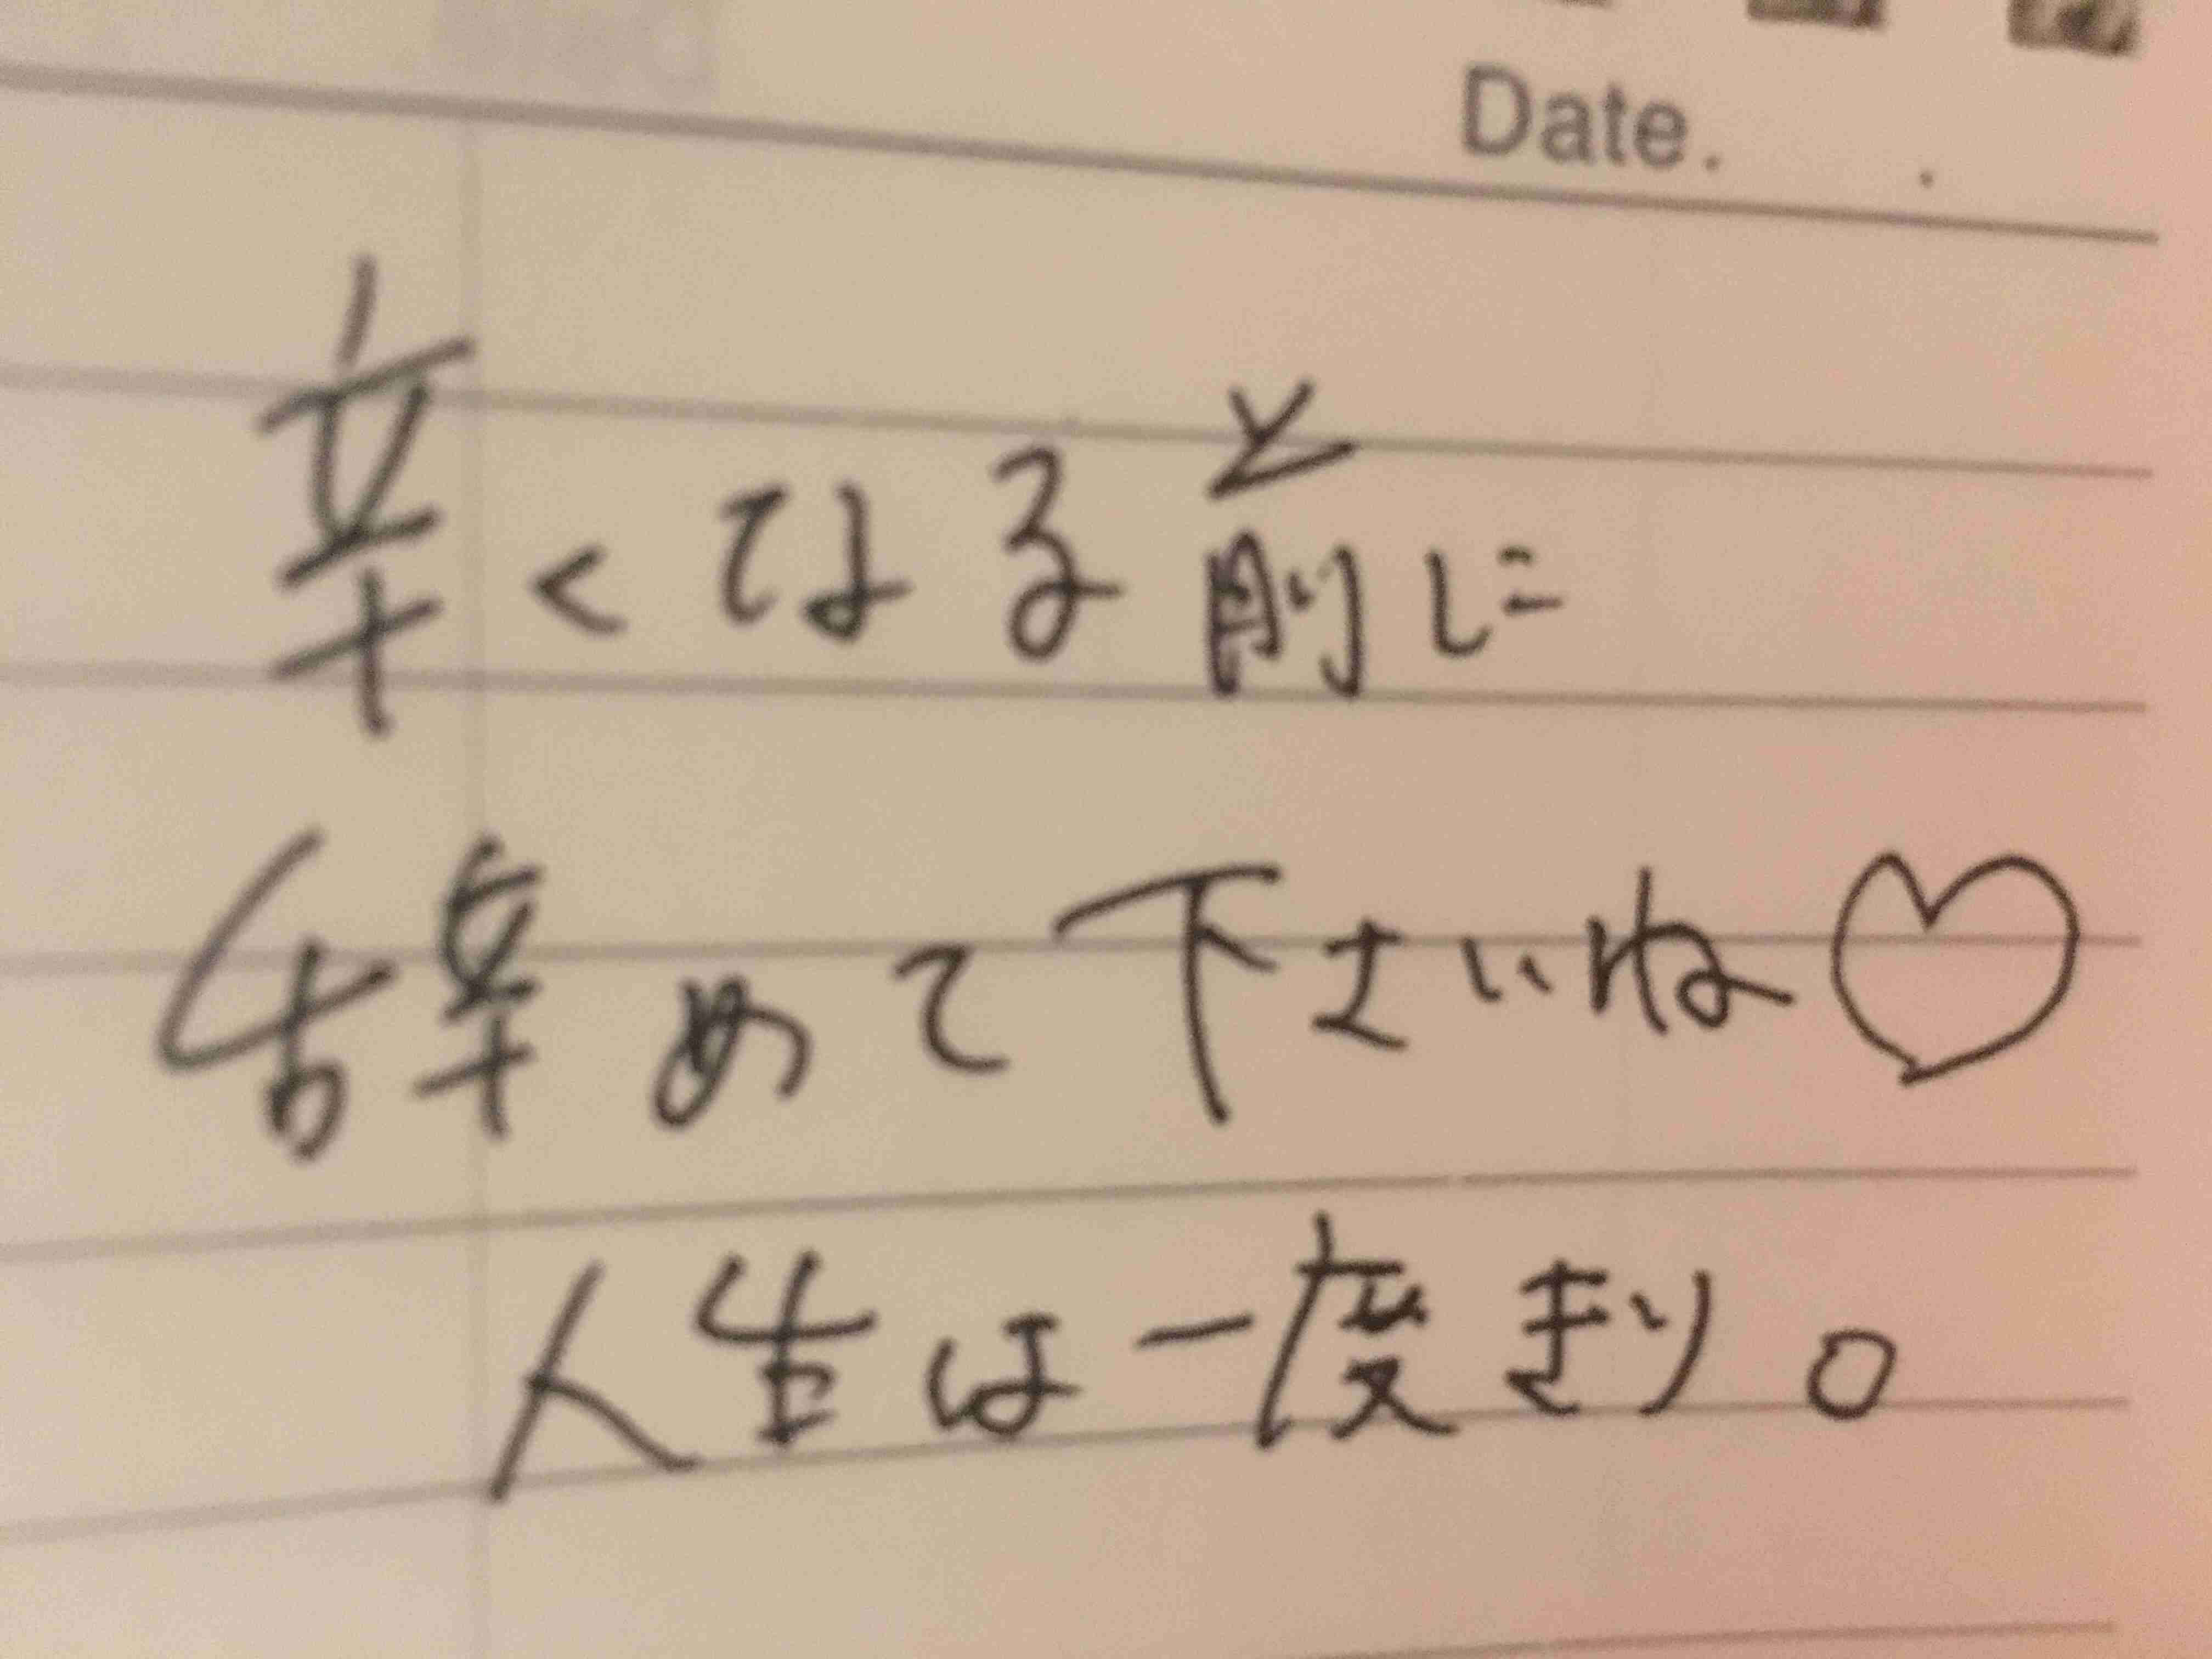 Date.    .
辛くなる前に
辞めて下さいね♡
人生は一度きり。